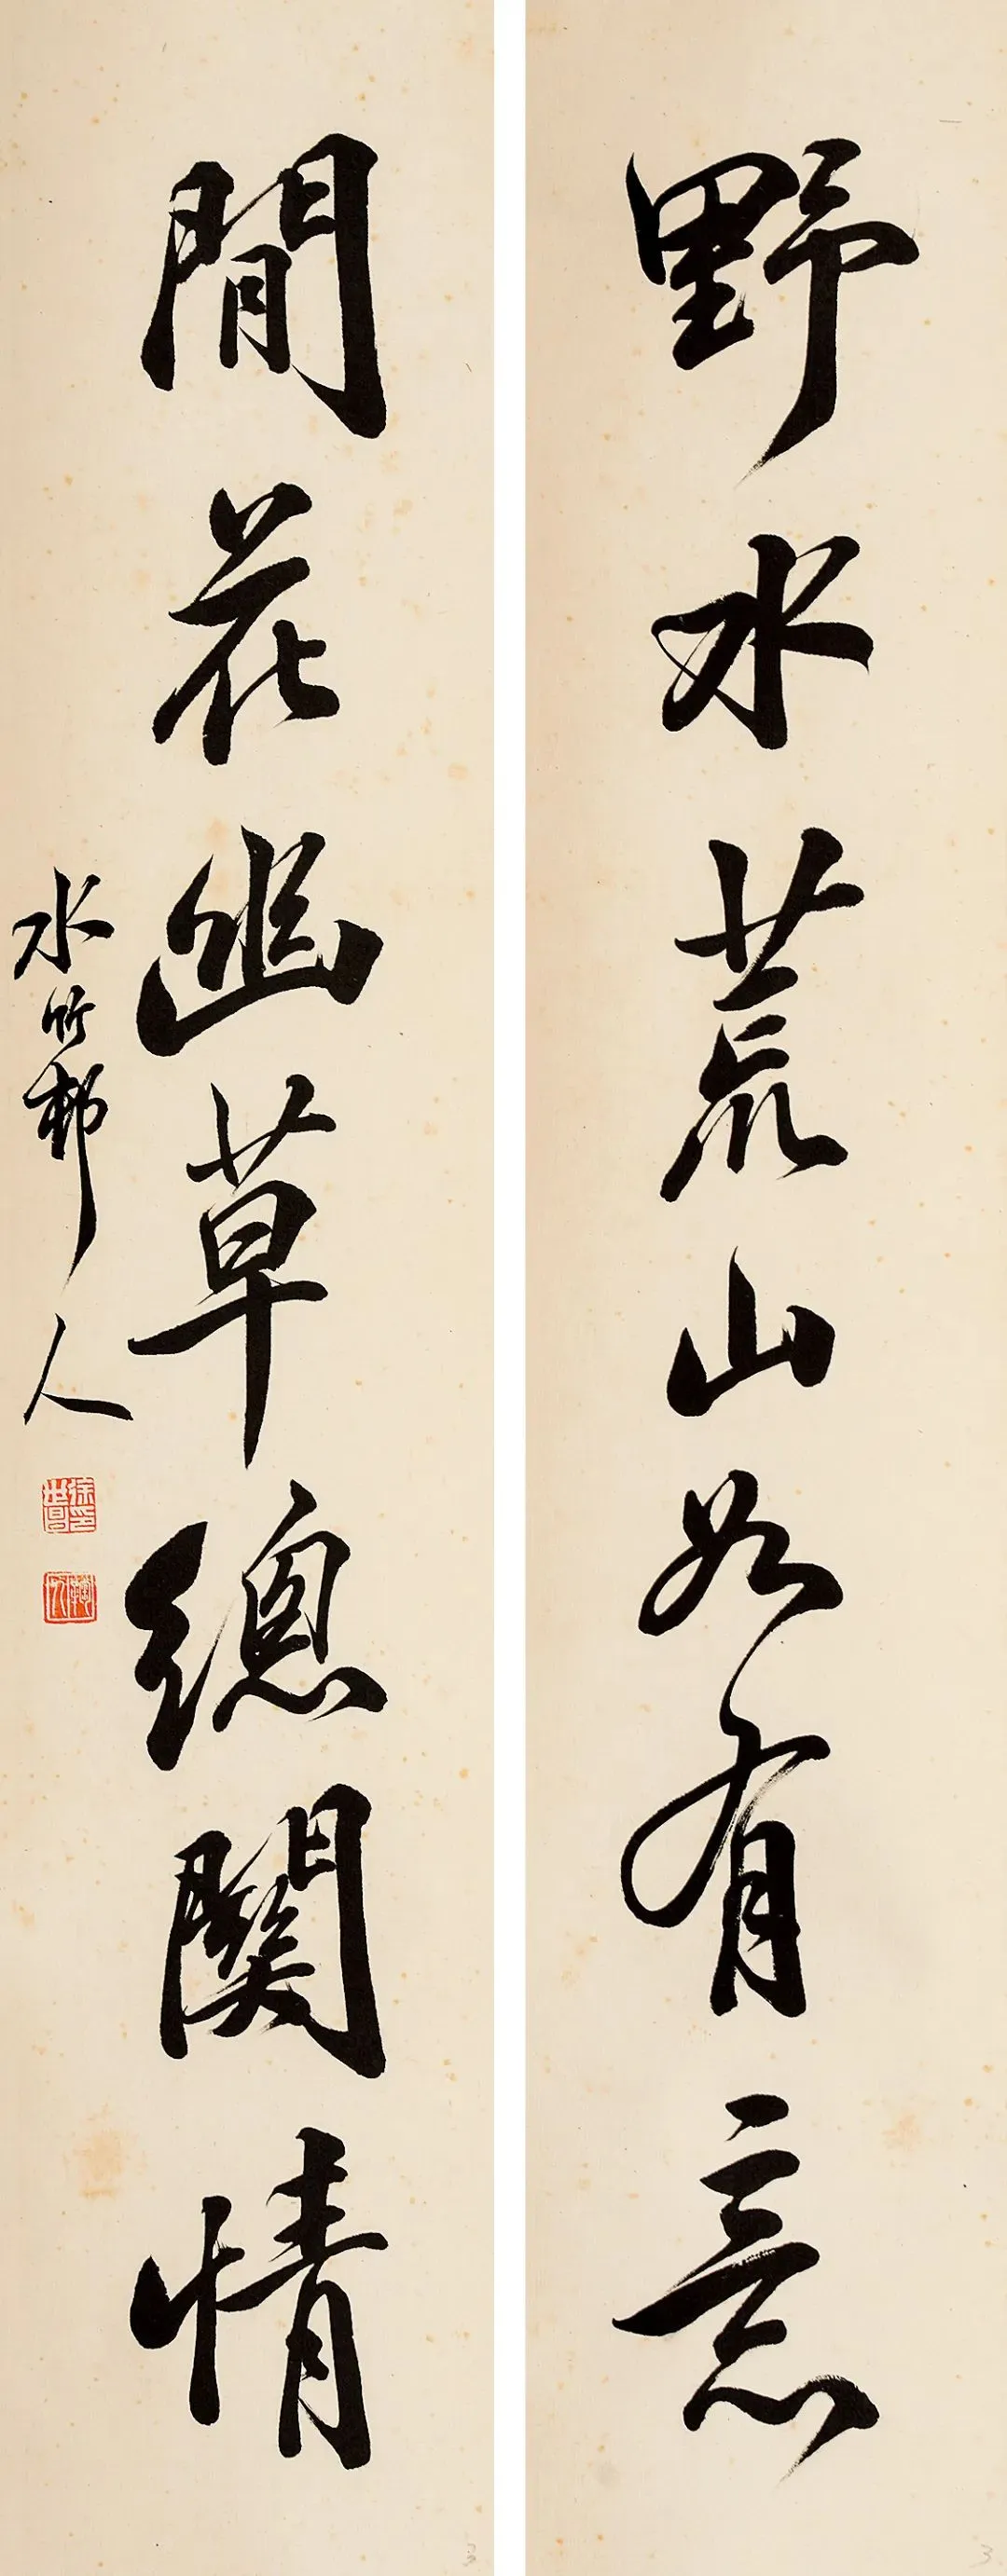 野水荒山如有意
閒花幽草總關情
水竹邨人
徐世昌印